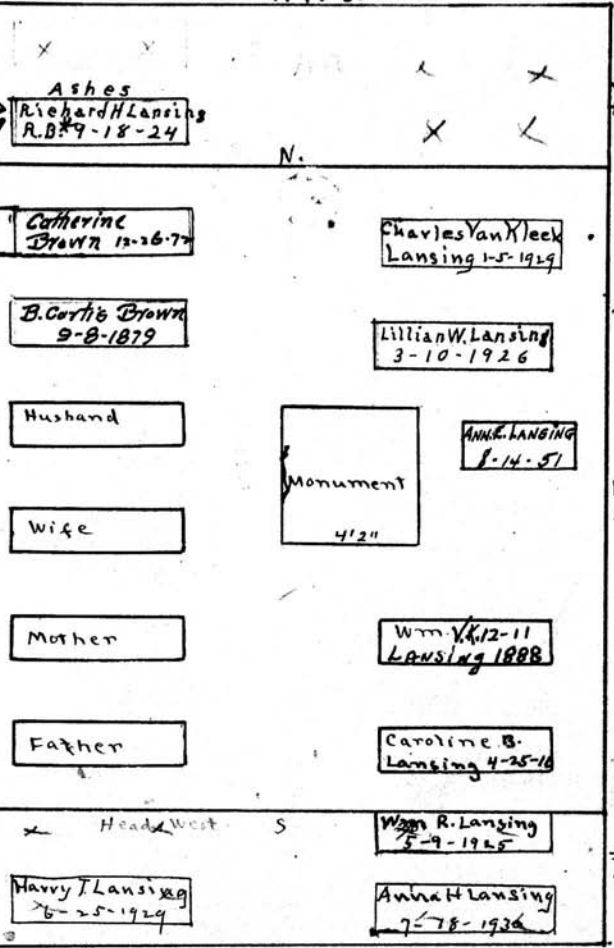 Ashes
Richard H Lansing
R.B. 9-18-24
N.
Catherine
Brown 12-26-72
B. Curtis Brown
9-8-1879
Husband
Wife
Mother
Father
Charles Van Kleek
Lansing 1-5-1929
Lillian W. Lansing
3-10-1926
ANN.E. LANSING
8-14-51
Monument
4'2"
Wm. V.K. 12-11
LANSING 1888
Caroline B.
Lansing 4-25-16
Heads West S
Wm R. Lansing
5-9-1925
Harry T. Lansing
6-25-1929
Anna H Lansing
7-18-1936